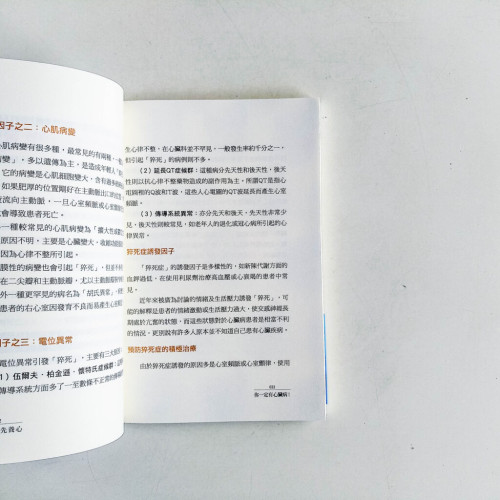 因子之二：心肌病變
心肌病變有很多種，最常見的有兩種，
病變」，多以遺傳為主，是造成年輕人「猝
它的病變是心肌細胞變大，含有過多
如果肥厚的位置剛好在主動脈出口的
流向主動脈，一旦心室頻脈或心室顫
就會導致患者死亡。
一種較常見的心肌病變為「擴大性
原因不明，主要是心臟變大，收縮功
因為心律不整所引起。
瓣膜性的病變也會引起「猝死」，但並
在二尖瓣和主動脈瓣，尤以主動脈瓣
外一種更罕見的病名為「胡氏異常」
患者的右心室因發育不良而易產生心
因子之三：電位異常
電位異常引發「猝死」，主要有三大
1）伍爾夫．柏金遜．懷特氏症候群：
傳導系統方面多了一至數條不正常的
先養心
生心律不整，在心臟科並不罕見，一般發生率約千分之一，
但引起「猝死」的病例則不多。
（2）延長QT症候群：這種病分先天性和後天性，後天
性則以抗心律不整藥物造成的副作用為主，所謂QT是指心
電圖裡的Q波和T波，這些人心電圖的QT波延長而產生心室
頻脈。
（3）傳導系統異常：亦分先天和後天，先天性非常少
見，後天性則較常見，如老年人的退化或冠心病所引起的心
律異常。
猝死症誘發因子
「猝死症」的誘發因子是多樣性的，如新陳代謝方面的
血鉀過低，在使用利尿劑治療高血壓或心衰竭的患者中常
見。
近年來被廣為討論的情緒及生活壓力誘發「猝死」，可
能的解釋是患者的情緒激動或生活壓力過大，使交感神經長
期處於亢奮的狀態，而這些狀態對於心臟病患者是相當不利
的情況，更別說有許多人原本並不知道自己患有心臟疾病。
預防猝死症的積極治療
由於猝死症誘發的原因多是心室頻脈或心室顫動，使用
你一定有心臟病！